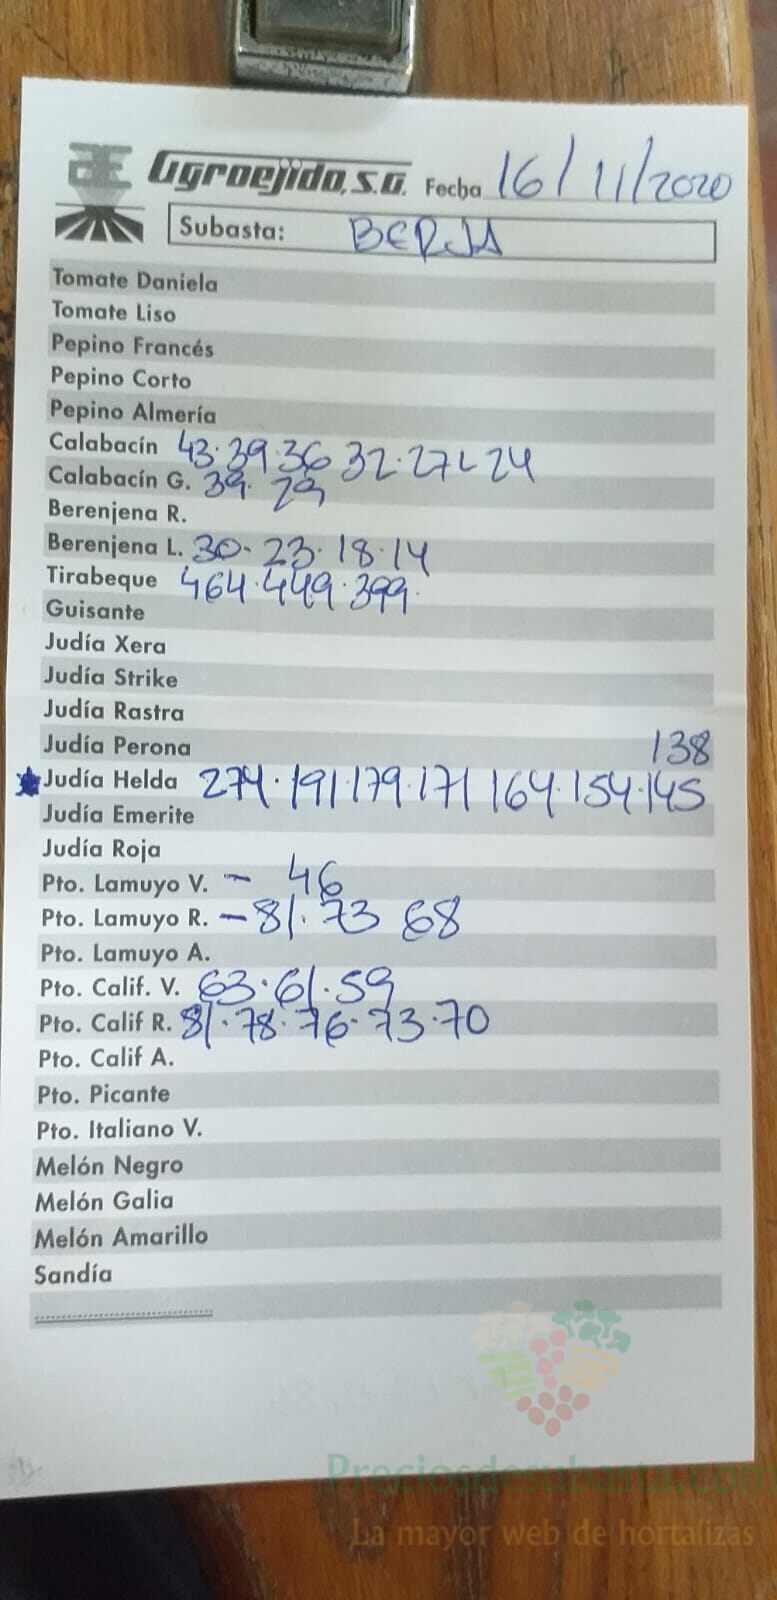 Agroejido, S.A. Fecha 16/11/2020
Subasta: BERJA
Tomate Daniela
Tomate Liso
Pepino Francés
Pepino Corto
Pepino Almería
Calabacín 43.39.36 32.27 24
Calabacín G. 39. 29
Berenjena R.
Berenjena L. 30.23.18.14
Tirabeque 464.449.399.
Guisante
Judía Xera
Judía Strike
Judía Rastra
Judía Perona 138
Judía Helda 274.191.179.171 164.154.145
Judía Emerite
Judía Roja
Pto. Lamuyo V. - 46
Pto. Lamuyo R. -81.73 68
Pto. Lamuyo A.
Pto. Calif. V. 63.61.59
Pto. Calif R. 81.78.76.73.70
Pto. Calif A.
Pto. Picante
Pto. Italiano V.
Melón Negro
Melón Galia
Melón Amarillo
Sandía
Preciosdesubasta.com
La mayor web de hortalizas